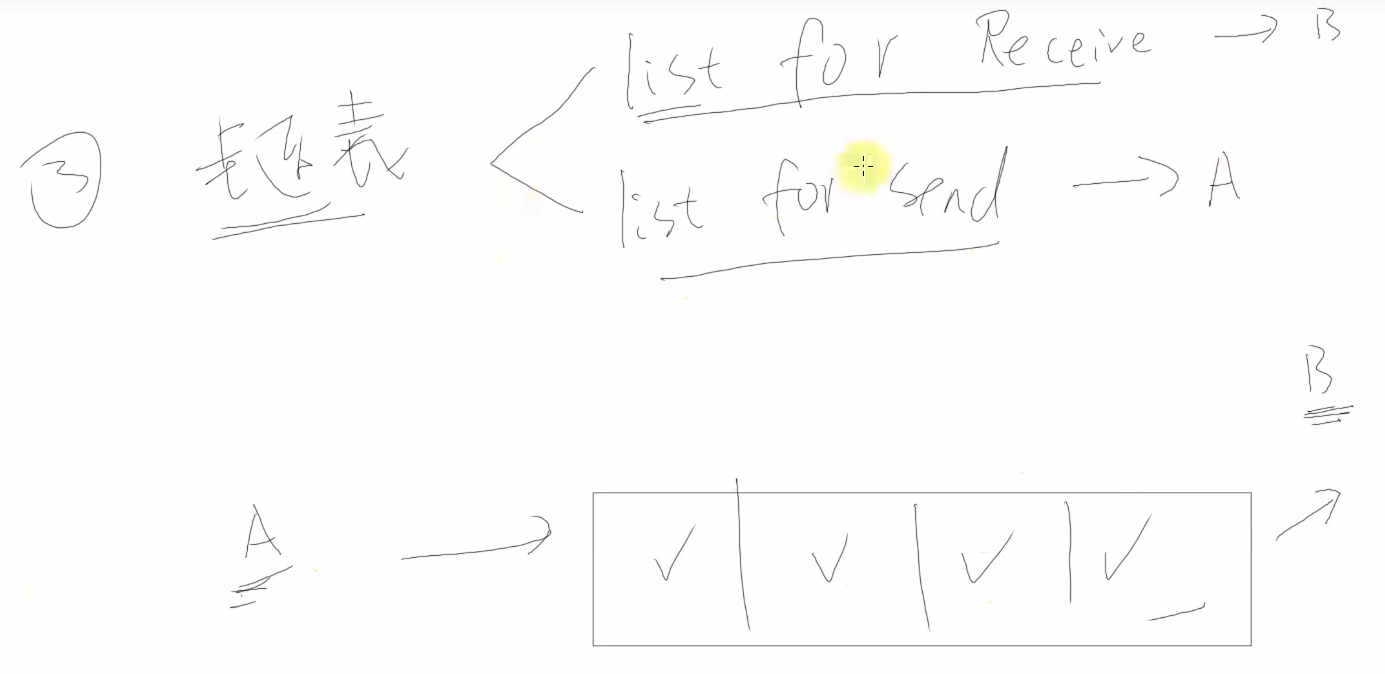 list for Receive → B
③ 链表
list for send → A
B
A → ✓ ✓ ✓ ✓